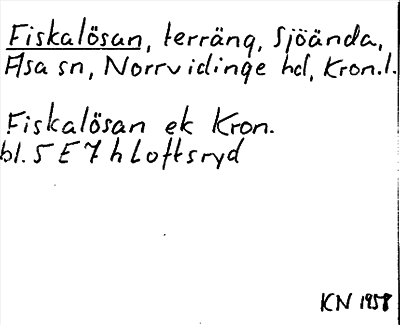 Fiskalösan, terräng, Sjöända,
Asa sn, Norrvidinge hd, Kron.l.
Fiskalösan ek Kron.
bl. 5 E 7 h Loftsryd
KN 1958